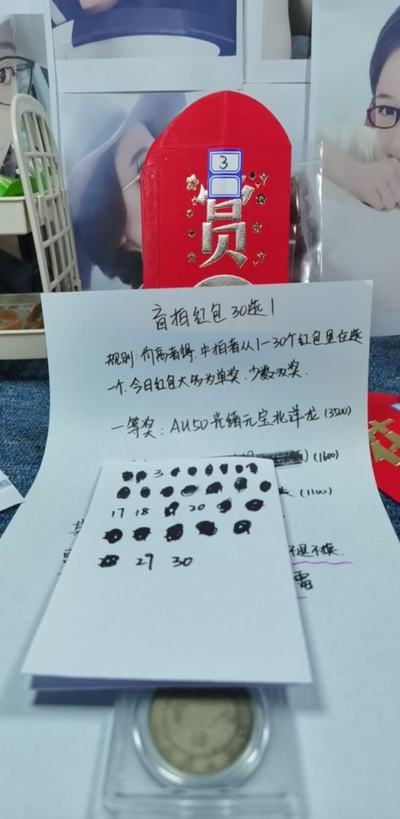 3
赏
盲拍红包30选1
规则:价高者得,中拍者从1—30个红包里任选
一个.今日红包大多为单奖.少数双奖.
一等奖:AU50光绪元宝北洋龙(3500)
(1600)
(1100)
3
17 18 20
29 30
不退不换.
雷